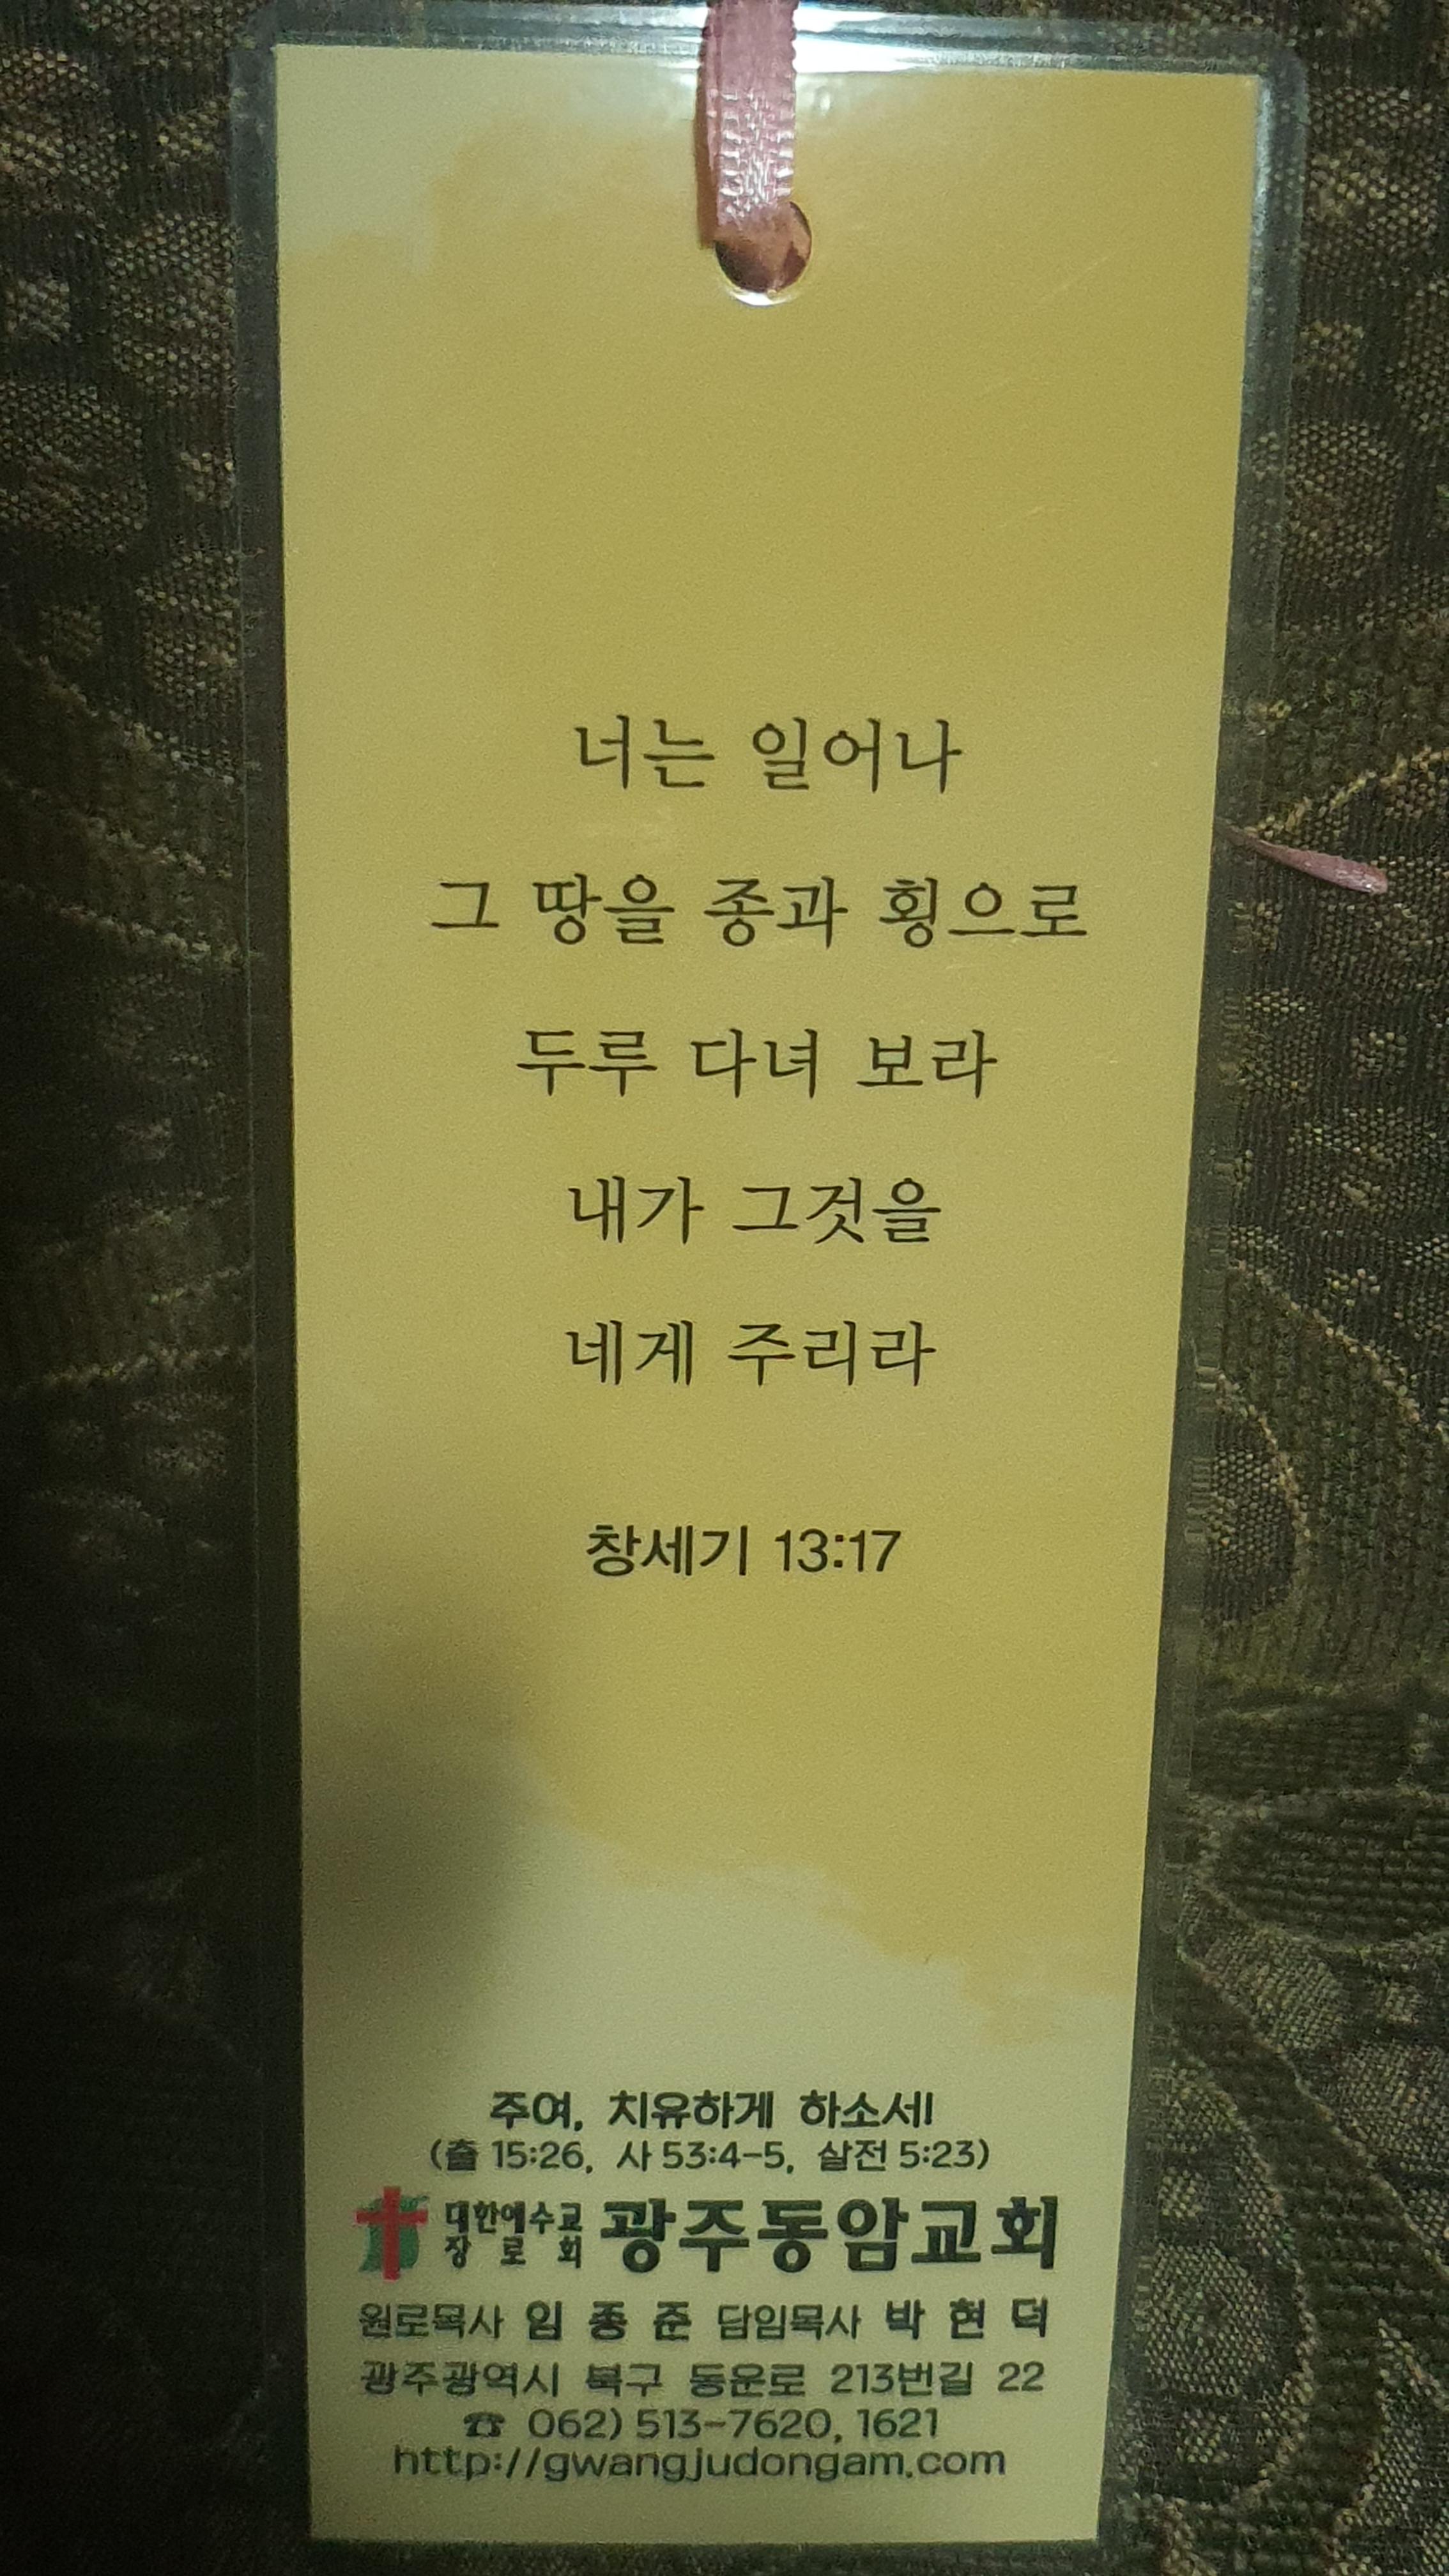 너는 일어나
그 땅을 종과 횡으로
두루 다녀 보라
내가 그것을
네게 주리라
창세기 13:17
주여, 치유하게 하소서!
(출 15:26, 사 53:4-5, 살전 5:23)
대한예수교
장로회 광주동암교회
원로목사 임 종 준 담임목사 박 현 덕
광주광역시 북구 동운로 213번길 22
☎ 062) 513-7620, 1621
http://gwangjudongam.com